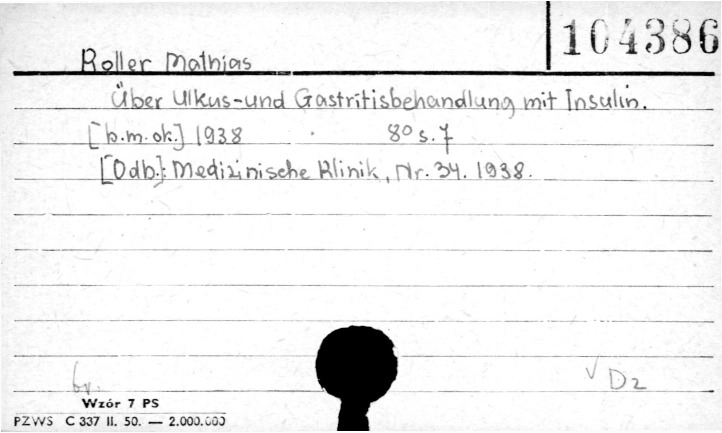 104386
Roller Mathias
Über Ulkus-und Gastritisbehandlung mit Insulin.
[b.m.ok.] 1938 8° s. 7
[Odb.]: Medizinische Klinik, Nr. 34. 1938.
br.
√ Dz
Wzór 7 PS
PZWS C 337 II. 50. — 2.000.000